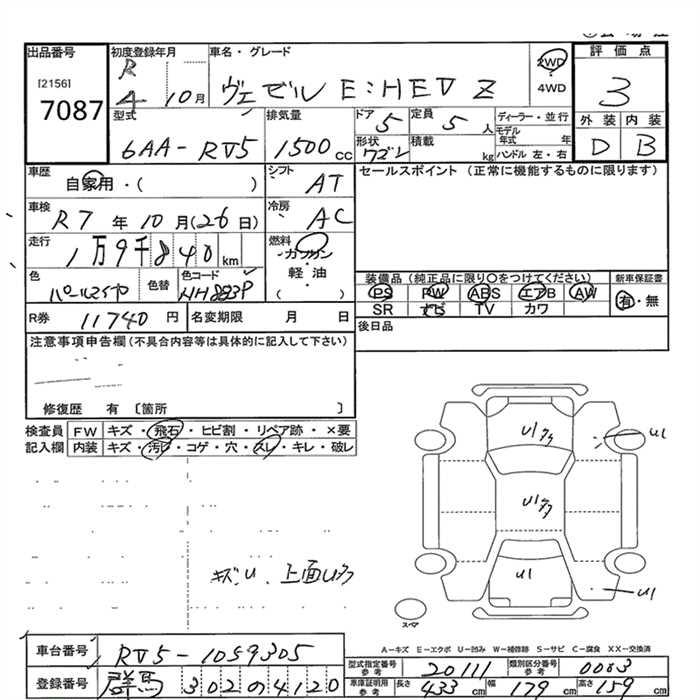 出品番号 初度登録年月 車名・グレード 評価点
[2156] R 2WD
7087 4 10月 ヴェゼル E:HEV Z ・ 4WD 3
型式 排気量 ドア 5 定員 5人 ディーラー・並行 外装 内装
6AA-RV5 1500cc 形状 ワゴン 積載 kg モデル年式 年 ハンドル 左・右 D B
車歴 自家用・( ) シフト AT セールスポイント (正常に機能するものに限ります)
車検 R7年10月(26日) 冷房 AC
走行 1万9千840km 燃料 ガソリン
・軽・油
( )
色 色替 色コード NH883P 装備品(純正品に限り○をつけてください) 新車保証書
PS PW ABS エアB AW 有・無
SR ナビ TV カワ
R券 11740円 名変期限 月 日 後日品
注意事項申告欄(不具合内容等は具体的に記入して下さい)
修復歴 有〔箇所 〕
検査員 FW キズ・飛石・ヒビ割・リペア跡・×要
記入欄 内装 キズ・汚レ・コゲ・穴・スレ・キレ・破レ
U1 U1
U1
U1 U1
キズU 上面
スペア
A-キズ E-エクボ U-凹み W-補修跡 S-サビ C-腐食 XX-交換済
車台番号 RV5-1059305
型式指定番号参考 20111 類別区分番号参考 0083
登録番号 群馬 302の4120
車庫証明用参考 長さ 433cm 幅 179cm 高さ 159cm